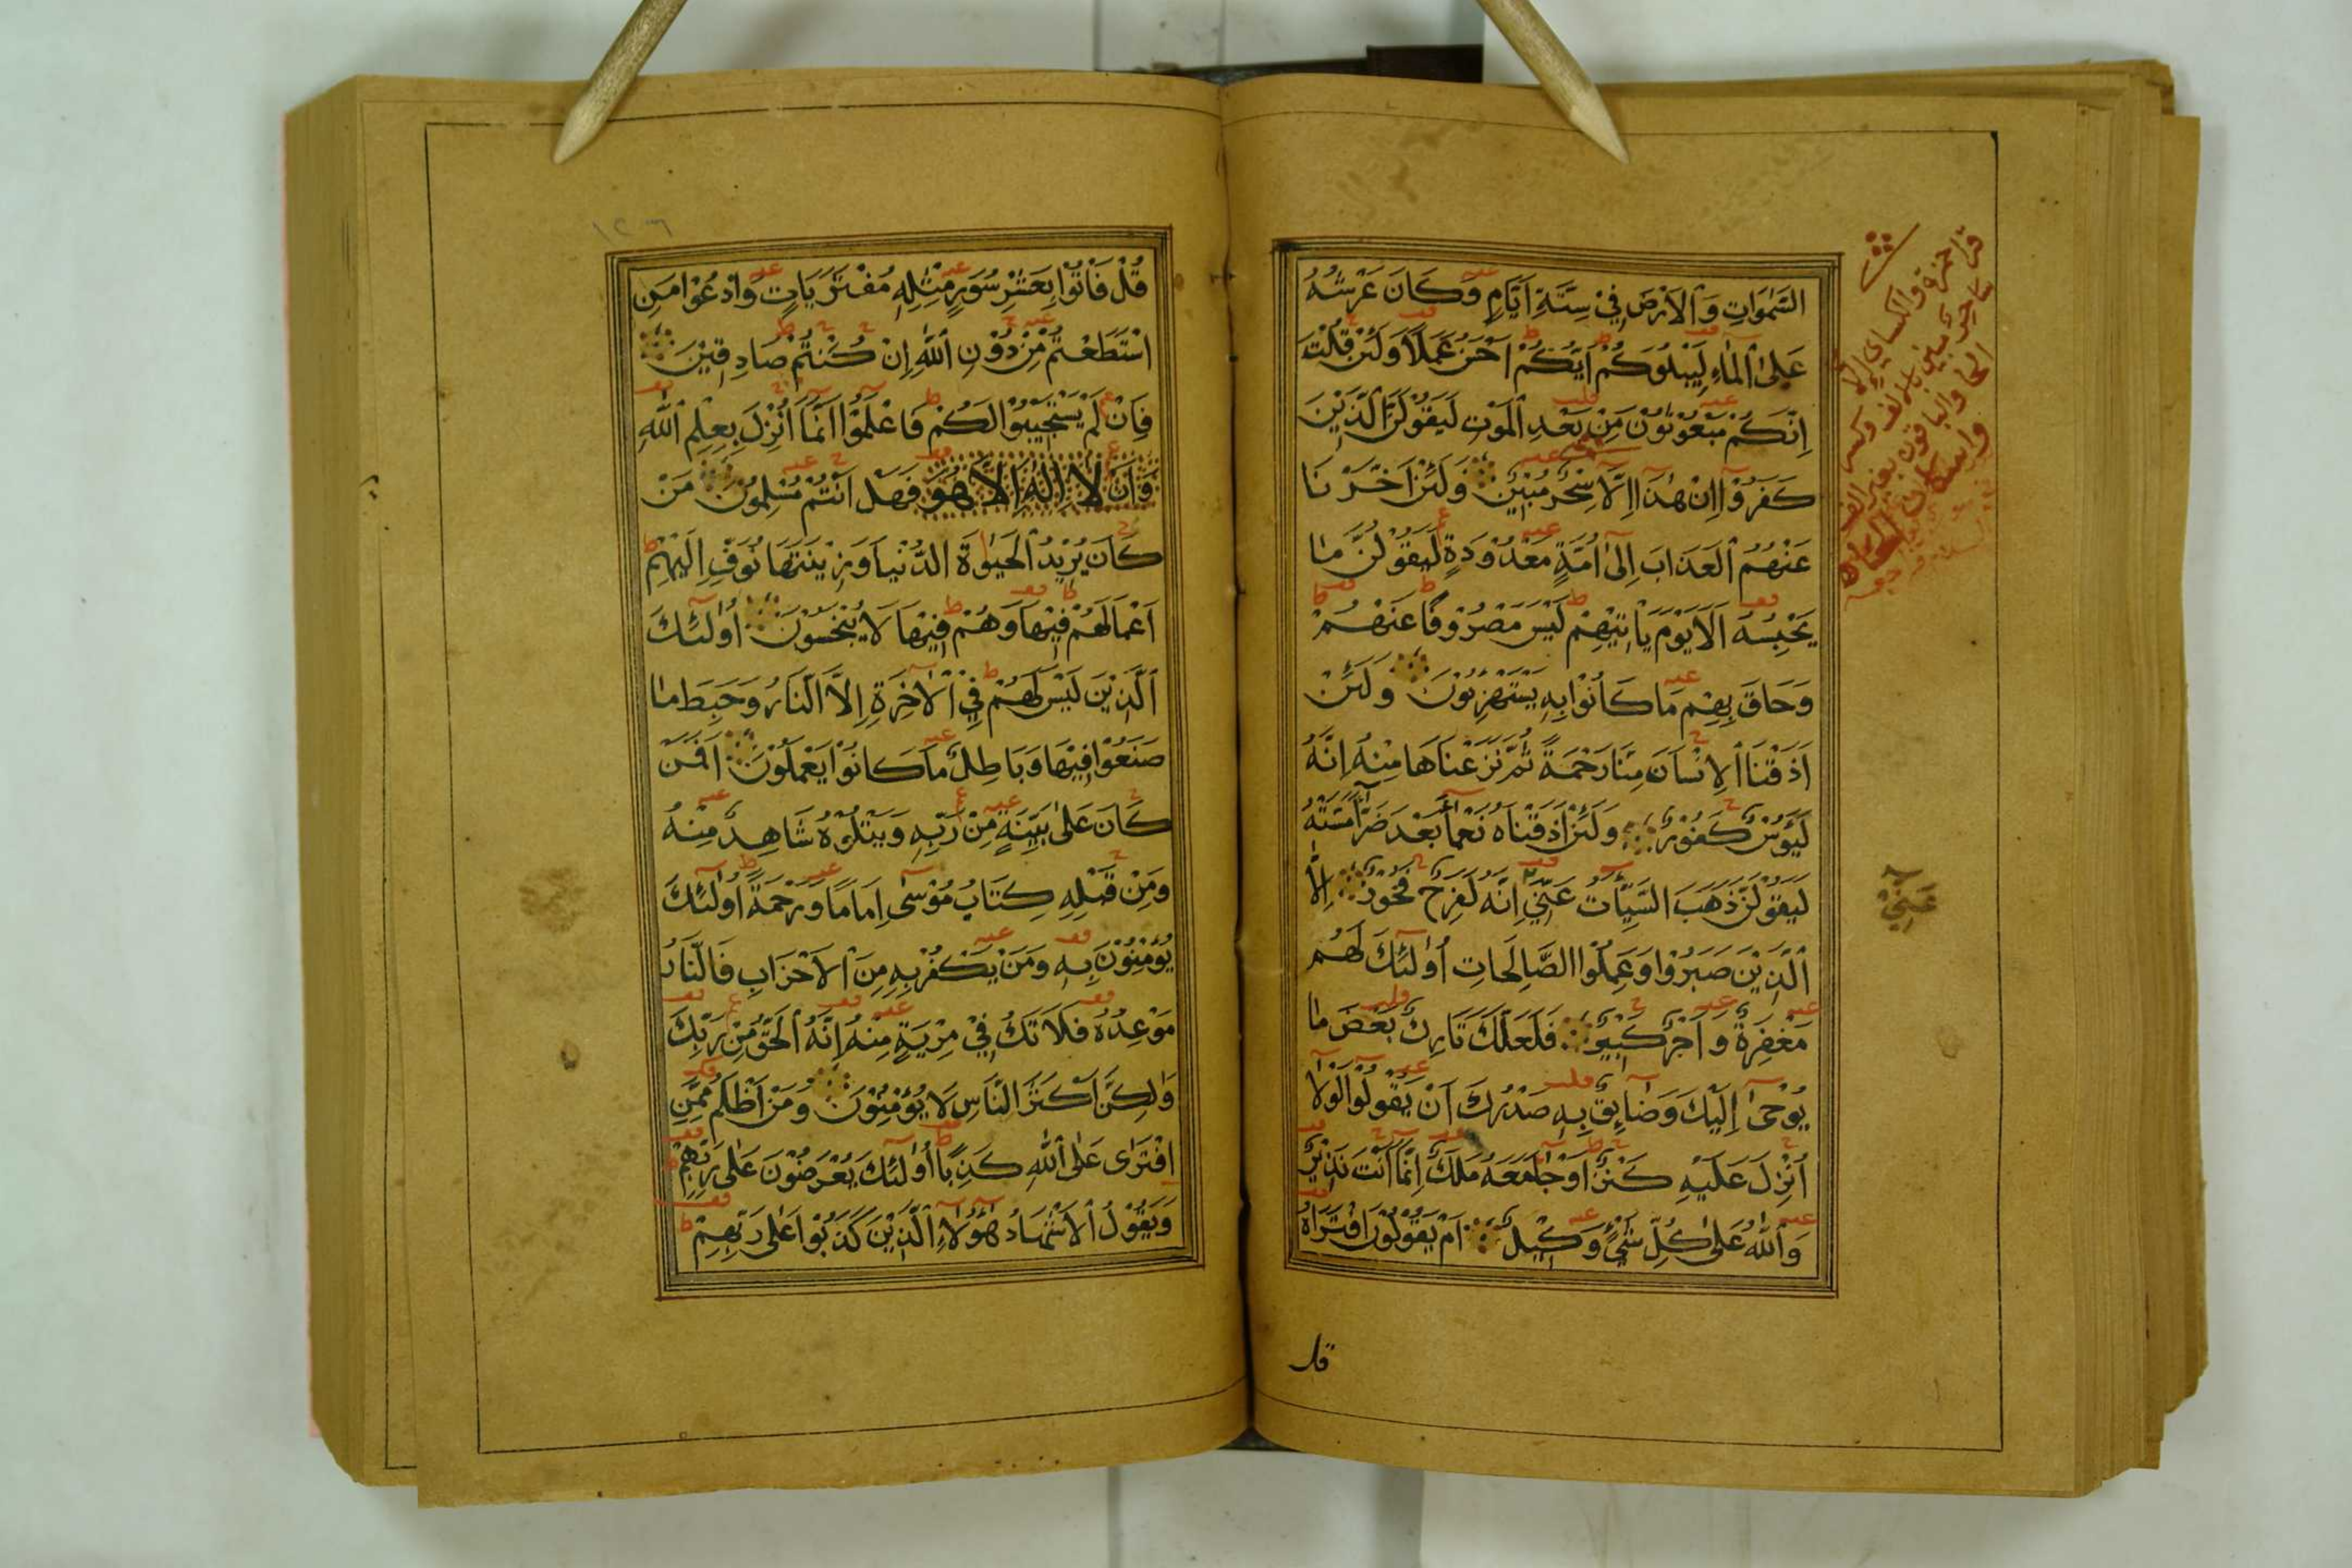 السَّمٰوَاتِ وَالْاَرْضَ فِيْ سِتَّةِ اَيَّامٍ وَكَانَ عَرْشُهُ
عَلَى الْمَاءِ لِيَبْلُوَكُمْ اَيُّكُمْ اَحْسَنُ عَمَلًا وَلَئِنْ قُلْتَ
اِنَّكُمْ مَبْعُوْثُوْنَ مِنْ بَعْدِ الْمَوْتِ لَيَقُوْلَنَّ الَّذِيْنَ
كَفَرُوْا اِنْ هٰذَا اِلَّا سِحْرٌ مُبِيْنٌ وَلَئِنْ اَخَّرْنَا
عَنْهُمُ الْعَذَابَ اِلٰى اُمَّةٍ مَعْدُوْدَةٍ لَيَقُوْلُنَّ مَا
يَحْبِسُهُ اَلَا يَوْمَ يَاْتِيْهِمْ لَيْسَ مَصْرُوْفًا عَنْهُمْ
وَحَاقَ بِهِمْ مَا كَانُوْا بِهِ يَسْتَهْزِؤُنَ وَلَئِنْ
اَذَقْنَا الْاِنْسَانَ مِنَّا رَحْمَةً ثُمَّ نَزَعْنَاهَا مِنْهُ اِنَّهُ
لَيَؤُسٌ كَفُوْرٌ وَلَئِنْ اَذَقْنَاهُ نَعْمَآءَ بَعْدَ ضَرَّآءَ مَسَّتْهُ
لَيَقُوْلَنَّ ذَهَبَ السَّيِّاٰتُ عَنِّيْ اِنَّهُ لَفَرِحٌ فَخُوْرٌ اِلَّا
الَّذِيْنَ صَبَرُوْا وَعَمِلُوا الصَّالِحَاتِ اُولٰئِكَ لَهُمْ
مَغْفِرَةٌ وَاَجْرٌ كَبِيْرٌ فَلَعَلَّكَ تَارِكٌ بَعْضَ مَا
يُوْحٰى اِلَيْكَ وَضَائِقٌ بِهِ صَدْرُكَ اَنْ يَقُوْلُوْا لَوْلَا
اُنْزِلَ عَلَيْهِ كَنْزٌ اَوْ جَآءَ مَعَهُ مَلَكٌ اِنَّمَا اَنْتَ نَذِيْرٌ
وَاللّٰهُ عَلٰى كُلِّ شَيْءٍ وَكِيْلٌ اَمْ يَقُوْلُوْنَ افْتَرَاهُ
قل
قرا حمزة والكسائي الا
ساحر مبين بالالف وكسر
الحا والباقون بغير الف
واسكان الحا
عَنِّيْ
١٢٦
قُلْ فَاْتُوْا بِعَشْرِ سُوَرٍ مِثْلِهِ مُفْتَرَيَاتٍ وَادْعُوْا مَنِ
اسْتَطَعْتُمْ مِنْ دُوْنِ اللّٰهِ اِنْ كُنْتُمْ صَادِقِيْنَ
فَاِنْ لَمْ يَسْتَجِيْبُوْا لَكُمْ فَاعْلَمُوْا اَنَّمَا اُنْزِلَ بِعِلْمِ اللّٰهِ
وَاَنْ لَا اِلٰهَ اِلَّا هُوَ فَهَلْ اَنْتُمْ مُسْلِمُوْنَ مَنْ
كَانَ يُرِيْدُ الْحَيٰوةَ الدُّنْيَا وَزِيْنَتَهَا نُوَفِّ اِلَيْهِمْ
اَعْمَالَهُمْ فِيْهَا وَهُمْ فِيْهَا لَا يُبْخَسُوْنَ اُولٰئِكَ
الَّذِيْنَ لَيْسَ لَهُمْ فِي الْاٰخِرَةِ اِلَّا النَّارُ وَحَبِطَ مَا
صَنَعُوْا فِيْهَا وَبَاطِلٌ مَا كَانُوْا يَعْمَلُوْنَ اَفَمَنْ
كَانَ عَلٰى بَيِّنَةٍ مِنْ رَبِّهِ وَيَتْلُوْهُ شَاهِدٌ مِنْهُ
وَمِنْ قَبْلِهِ كِتَابُ مُوْسٰى اِمَامًا وَرَحْمَةً اُولٰئِكَ
يُؤْمِنُوْنَ بِهِ وَمَنْ يَكْفُرْ بِهِ مِنَ الْاَحْزَابِ فَالنَّارُ
مَوْعِدُهُ فَلَا تَكُ فِيْ مِرْيَةٍ مِنْهُ اِنَّهُ الْحَقُّ مِنْ رَبِّكَ
وَلٰكِنَّ اَكْثَرَ النَّاسِ لَا يُؤْمِنُوْنَ وَمَنْ اَظْلَمُ مِمَّنِ
افْتَرٰى عَلَى اللّٰهِ كَذِبًا اُولٰئِكَ يُعْرَضُوْنَ عَلٰى رَبِّهِمْ
وَيَقُوْلُ الْاَشْهَادُ هٰؤُلَاءِ الَّذِيْنَ كَذَبُوْا عَلٰى رَبِّهِمْ